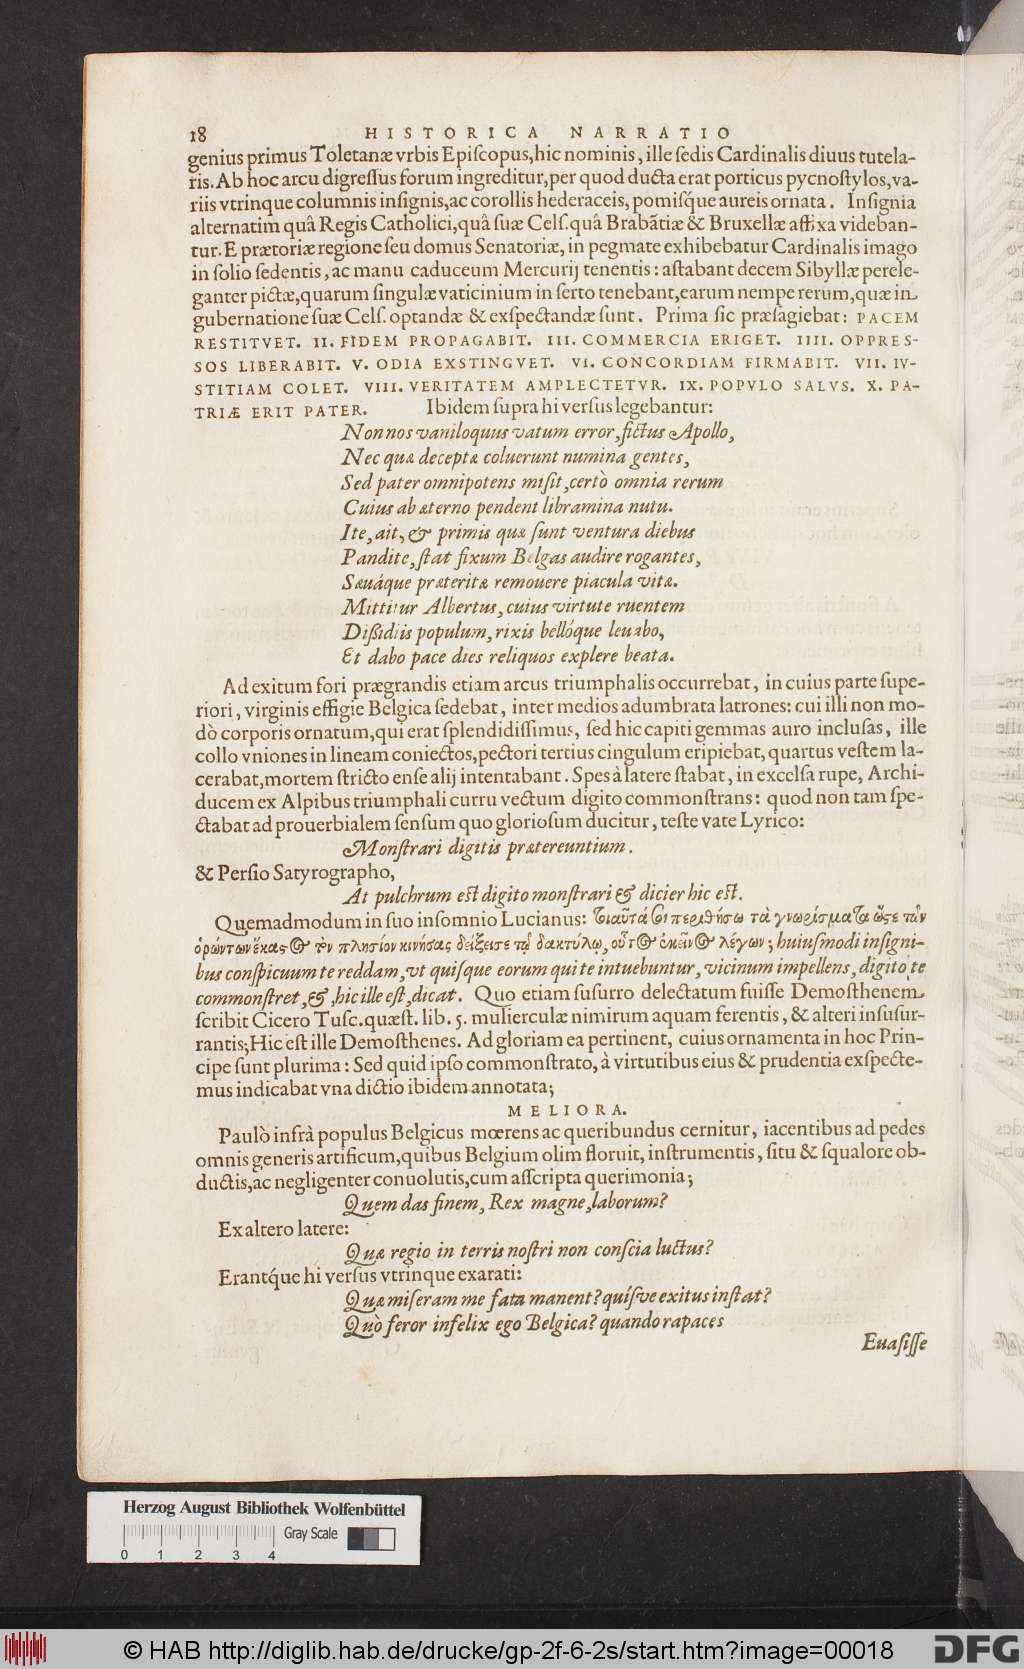 18 HISTORICA NARRATIO
genius primus Toletanæ vrbis Epiſcopus, hic nominis, ille ſedis Cardinalis diuus tutela-
ris. Ab hoc arcu digreſſus forum ingreditur, per quod ducta erat porticus pycnoſtylos, va-
riis vtrinque columnis inſignis, ac corollis hederaceis, pomiſq́ue aureis ornata. Inſignia
alternatim quâ Regis Catholici, quâ ſuæ Celſ. quâ Brabãtiæ & Bruxellæ affixa videban-
tur. E prætoriæ regione ſeu domus Senatoriæ, in pegmate exhibebatur Cardinalis imago
in ſolio ſedentis, ac manu caduceum Mercurij tenentis: aſtabant decem Sibyllæ perele-
ganter pictæ, quarum ſingulæ vaticinium in ſerto tenebant, earum nempe rerum, quæ in
gubernatione ſuæ Celſ. optandæ & exſpectandæ ſunt. Prima ſic præſagiebat: PACEM
RESTITVET. II. FIDEM PROPAGABIT. III. COMMERCIA ERIGET. IIII. OPPRES-
SOS LIBERABIT. V. ODIA EXSTINGVET. VI. CONCORDIAM FIRMABIT. VII. IV-
STITIAM COLET. VIII. VERITATEM AMPLECTETVR. IX. POPVLO SALVS. X. PA-
TRIÆ ERIT PATER. Ibidem ſupra hi verſus legebantur:
Non nos vaniloquus vatum error, fictus Apollo,
Nec quæ deceptæ coluerunt numina gentes,
Sed pater omnipotens miſit, certò omnia rerum
Cuius ab æterno pendent libramina nutu.
Ite, ait, & primis quæ ſunt ventura diebus
Pandite, ſtat fixum Belgas audire rogantes,
Sæuáque præteritæ remouere piacula vitæ.
Mittitur Albertus, cuius virtute ruentem
Diſsidiis populum, rixis bellóque leuabo,
Et dabo pace dies reliquos explere beata.
Ad exitum fori prægrandis etiam arcus triumphalis occurrebat, in cuius parte ſupe-
riori, virginis effigie Belgica ſedebat, inter medios adumbrata latrones: cui illi non mo-
dò corporis ornatum, qui erat ſplendidiſſimus, ſed hic capiti gemmas auro incluſas, ille
collo vniones in lineam coniectos, pectori tertius cingulum eripiebat, quartus veſtem la-
cerabat, mortem ſtricto enſe alij intentabant. Spes à latere ſtabat, in excelſa rupe, Archi-
ducem ex Alpibus triumphali curru vectum digito commonſtrans: quod non tam ſpe-
ctabat ad prouerbialem ſenſum quo glorioſum ducitur, teſte vate Lyrico:
Monſtrari digitis prætereuntium.
& Perſio Satyrographo,
At pulchrum eſt digito monſtrari & dicier hic eſt.
Quemadmodum in ſuo inſomnio Lucianus: τοιαῦτά σοι περιθήσω τὰ γνωρίσματα ὥστε τῶν
ὁρώντων ἕκαστος τὸν πλησίον κινήσας δείξει σε τῷ δακτύλῳ, οὗτος ἐκεῖνος λέγων; huiuſmodi inſigni-
bus conſpicuum te reddam, vt quiſque eorum qui te intuebuntur, vicinum impellens, digito te
commonſtret, &, hic ille eſt, dicat. Quo etiam ſuſurro delectatum fuiſſe Demoſthenem
ſcribit Cicero Tuſc. quæſt. lib. 5. mulierculæ nimirum aquam ferentis, & alteri inſuſur-
rantis; Hic eſt ille Demoſthenes. Ad gloriam ea pertinent, cuius ornamenta in hoc Prin-
cipe ſunt plurima: Sed quid ipſo commonſtrato, à virtutibus eius & prudentia exſpecte-
mus indicabat vna dictio ibidem annotata;
MELIORA.
Paulò infrà populus Belgicus mœrens ac queribundus cernitur, iacentibus ad pedes
omnis generis artificum, quibus Belgium olim floruit, inſtrumentis, ſitu & ſqualore ob-
ductis, ac negligenter conuolutis, cum aſſcripta querimonia;
Quem das finem, Rex magne, laborum?
Ex altero latere:
Quæ regio in terris noſtri non conſcia luctus?
Erantq́ue hi verſus vtrinque exarati:
Quæ miſeram me fata manent? quiſve exitus inſtat?
Quò feror infelix ego Belgica? quando rapaces
Euaſiſſe
Herzog August Bibliothek Wolfenbüttel
Gray Scale
0 1 2 3 4
© HAB http://diglib.hab.de/drucke/gp-2f-6-2s/start.htm?image=00018
DFG